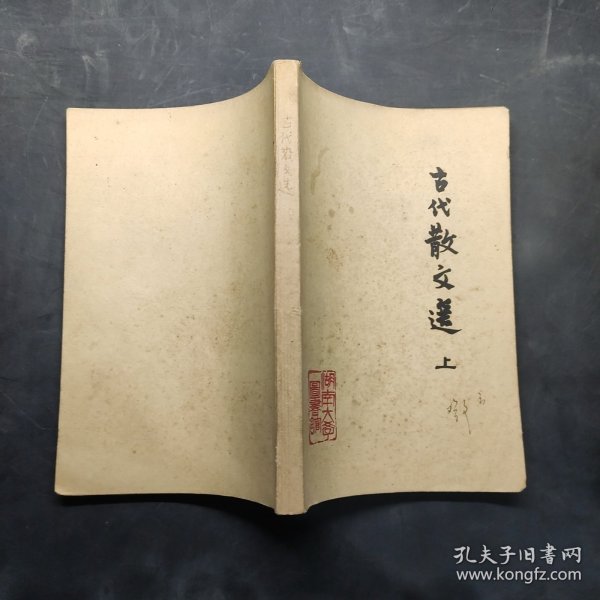 古代散文選
上
古代散文选
湖南大学
图书馆
孔夫子旧书网
www.kongfz.com